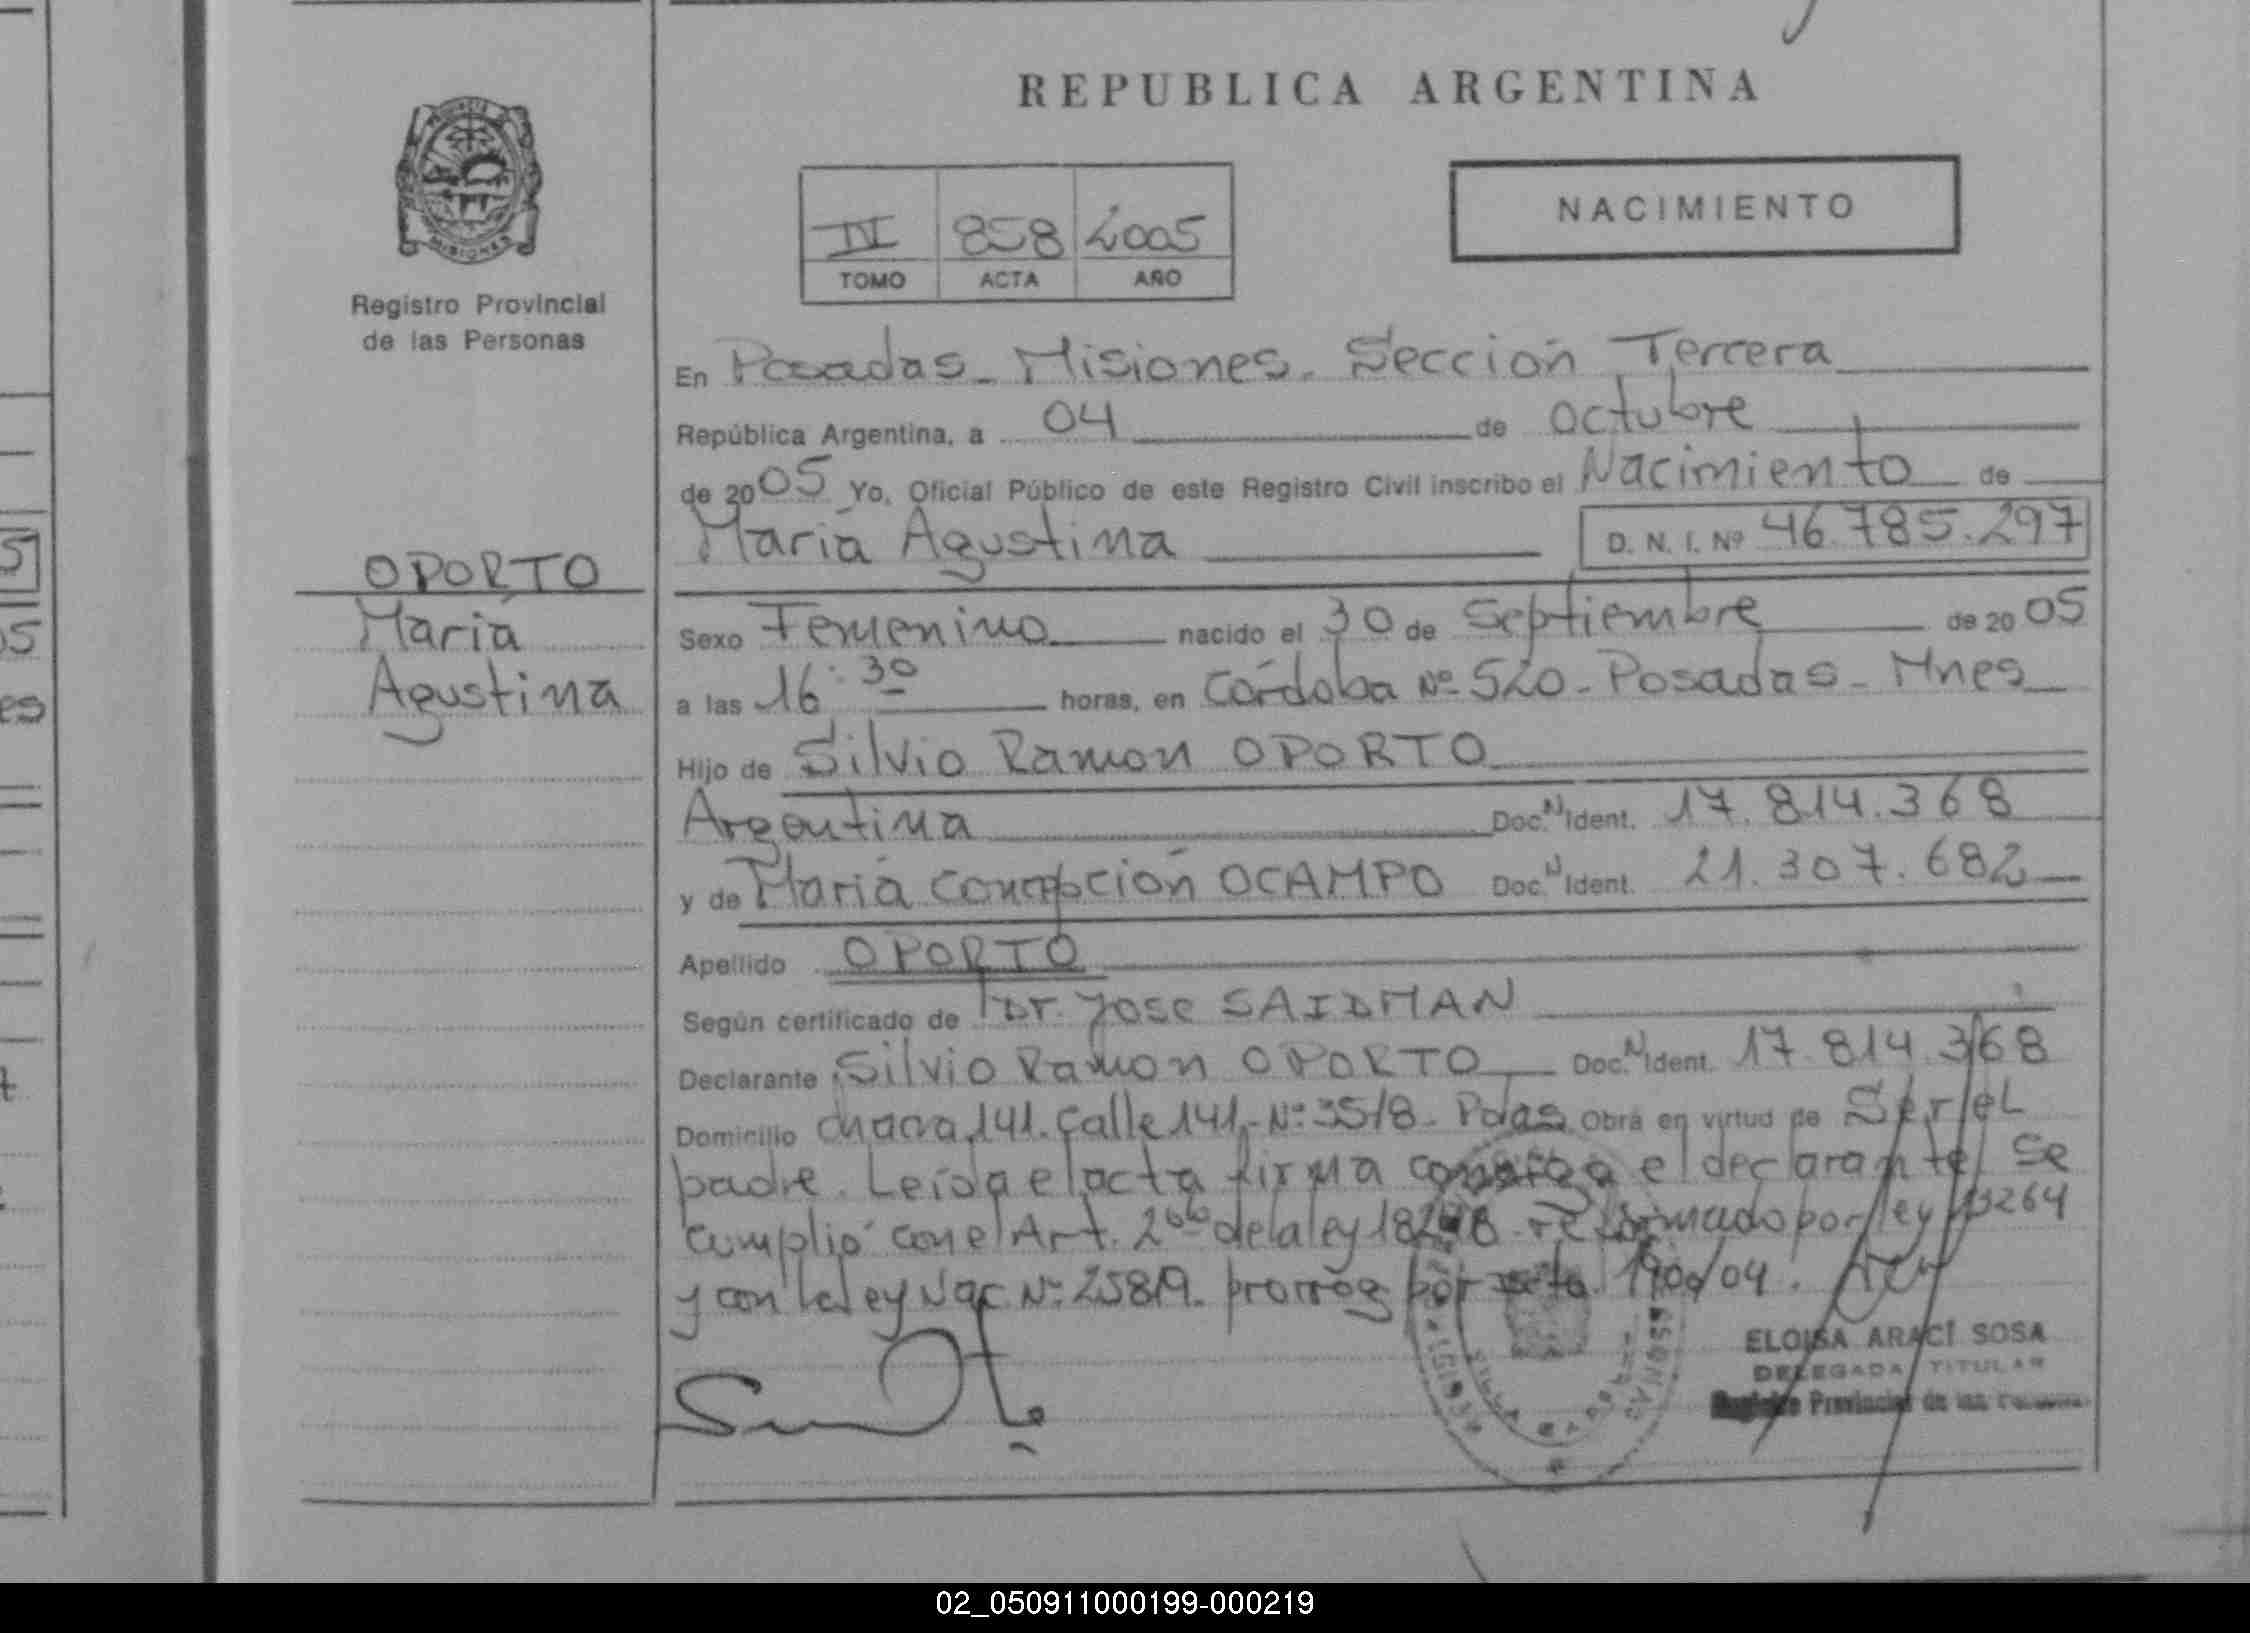 REPUBLICA ARGENTINA
PROVINCIA DE
MISIONES
Registro Provincial
de las Personas
IV 858 2005
TOMO ACTA AÑO
NACIMIENTO
En Posadas - Misiones. Sección Tercera
República Argentina, a 04 de octubre
de 2005 Yo, Oficial Público de este Registro Civil inscribo el Nacimiento de
María Agustina D. N. I. Nº 46.785.297
OPORTO
María
Agustina
Sexo Femenino nacido el 30 de Septiembre de 2005
a las 16:30 horas, en Córdoba Nº 520 - Posadas - Mnes
Hijo de Silvio Ramon OPORTO
Argentina Doc. N Ident. 17.814.368
y de María Concepción OCAMPO Doc. N Ident. 21.307.682
Apellido OPORTO
Según certificado de Dr. Jose SAIDMAN
Declarante Silvio Ramon OPORTO Doc. N Ident. 17.814.368
Domicilio chacra 141. Calle 141 - Nº 3518 - Pdas Obra en virtud de Ser el
padre. Leída el acta firma conmigo el declarante, Se
cumplió con el Art. 2do de la ley 18248 reformado por ley 23264
y con la ley Nac. Nº 25819. prorrog por 1900/04.
ELOISA ARACÍ SOSA
DELEGADA TITULAR
Registro Provincial de las Personas
02_050911000199-000219